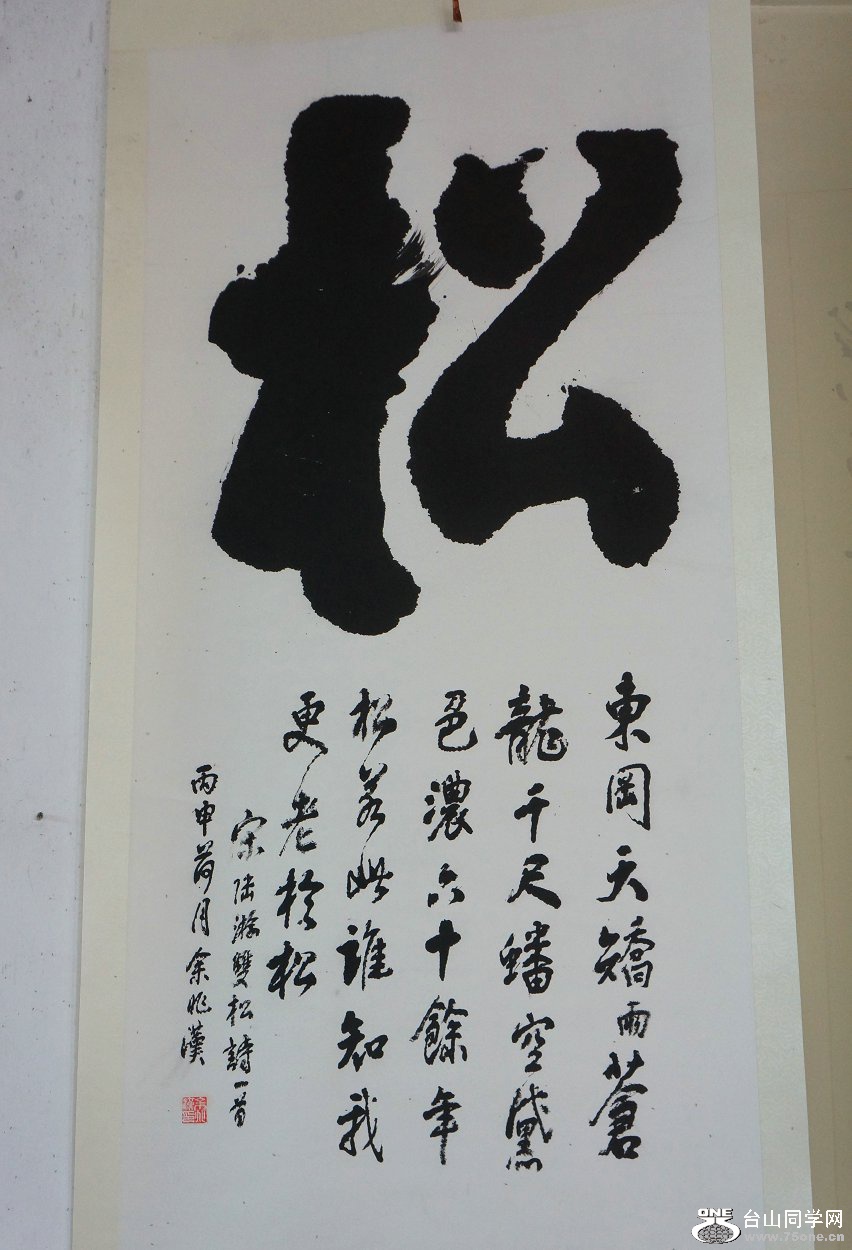 松
東岡夭矯兩蒼
龍千尺蟠空黛
色濃六十餘年
松若此誰知我
更老於松
宋陸游雙松詩一首
丙申荷月余兆漢
ONE 台山同学网
www.75one.cn